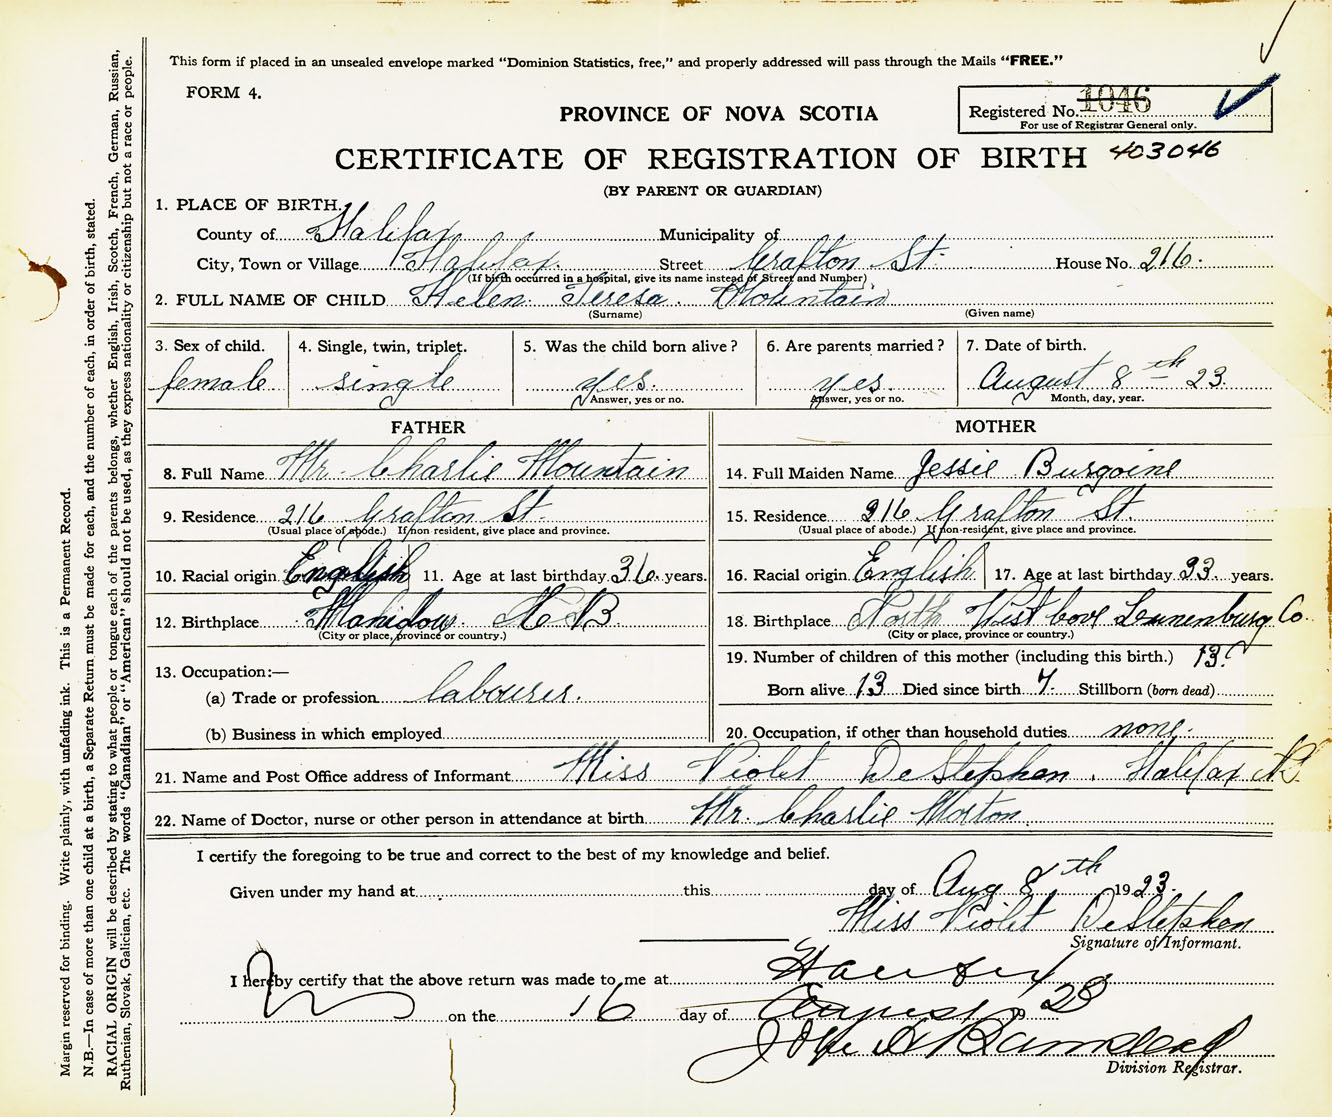 This form if placed in an unsealed envelope marked "Dominion Statistics, free," and properly addressed will pass through the Mails "FREE."
FORM 4.
PROVINCE OF NOVA SCOTIA
Registered No. 1046
For use of Registrar General only.
CERTIFICATE OF REGISTRATION OF BIRTH 403046
(BY PARENT OR GUARDIAN)
1. PLACE OF BIRTH.
County of Halifax Municipality of
City, Town or Village Halifax Street Grafton St. House No. 216.
(If birth occurred in a hospital, give its name instead of Street and Number).
2. FULL NAME OF CHILD Helen Teresa. Mountain
(Surname) (Given name)
3. Sex of child. 4. Single, twin, triplet. 5. Was the child born alive? 6. Are parents married? 7. Date of birth.
female single yes. yes. August 8th 23.
Answer, yes or no. Answer, yes or no. Month, day, year.
FATHER MOTHER
8. Full Name Mr. Charlie Mountain 14. Full Maiden Name Jessie Burgoine
9. Residence 216 Grafton St. 15. Residence 216 Grafton St.
(Usual place of abode.) If non-resident, give place and province. (Usual place of abode.) If non-resident, give place and province.
10. Racial origin English 11. Age at last birthday 36. years. 16. Racial origin English 17. Age at last birthday 33. years.
12. Birthplace N B 18. Birthplace North West Cove Lunenburg Co.
(City or place, province or country.) (City or place, province or country.)
13. Occupation:— 19. Number of children of this mother (including this birth.) 13.
(a) Trade or profession labourer. Born alive 13 Died since birth 7. Stillborn (born dead)
(b) Business in which employed 20. Occupation, if other than household duties none.
21. Name and Post Office address of Informant Miss Violet DeStephen. Halifax
22. Name of Doctor, nurse or other person in attendance at birth Mr. Charlie Morton
I certify the foregoing to be true and correct to the best of my knowledge and belief.
Given under my hand at this day of Aug 8th 1923.
Miss Violet DeStephen
Signature of Informant.
I hereby certify that the above return was made to me at Halifax
on the 16 day of August 19 23
Division Registrar.
Margin reserved for binding. Write plainly, with unfading ink. This is a Permanent Record.
N.B.—In case of more than one child at a birth, a Separate Return must be made for each, and the number of each, in order of birth, stated.
RACIAL ORIGIN will be described by stating to what people or tongue each of the parents belongs, whether English, Irish, Scotch, French, German, Russian,
Ruthenian, Slovak, Galician, etc. The words "Canadian" or "American" should not be used, as they express nationality or citizenship but not a race or people.